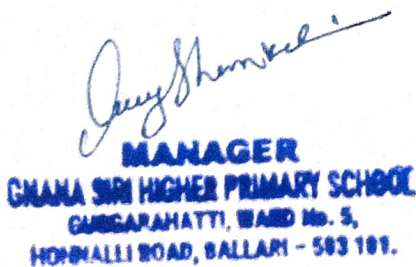 MANAGER
GNANA SIRI HIGHER PRIMARY SCHOOL
GUGGARAHATTI, WARD No. 5,
HONNALLI ROAD, BALLARI - 583 101.